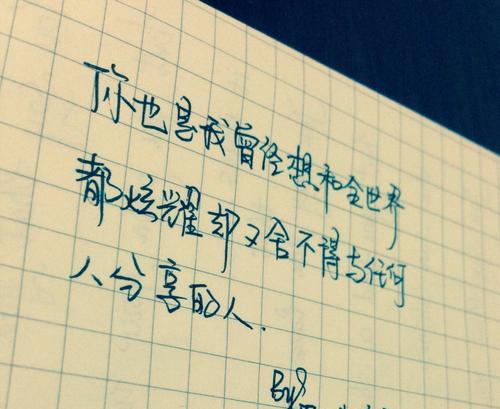 你也是我曾经想和全世界
都炫耀却又舍不得与任何
人分享的人.
By